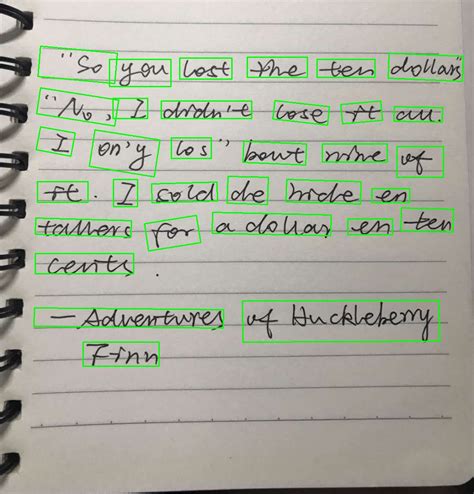 "So you lost the ten dollars"
"No, I didn't lose it all.
I on'y los" bout nine of
it. I sold de hide en
tallers for a dollar en ten
cents.
— Adventures of Huckleberry
Finn